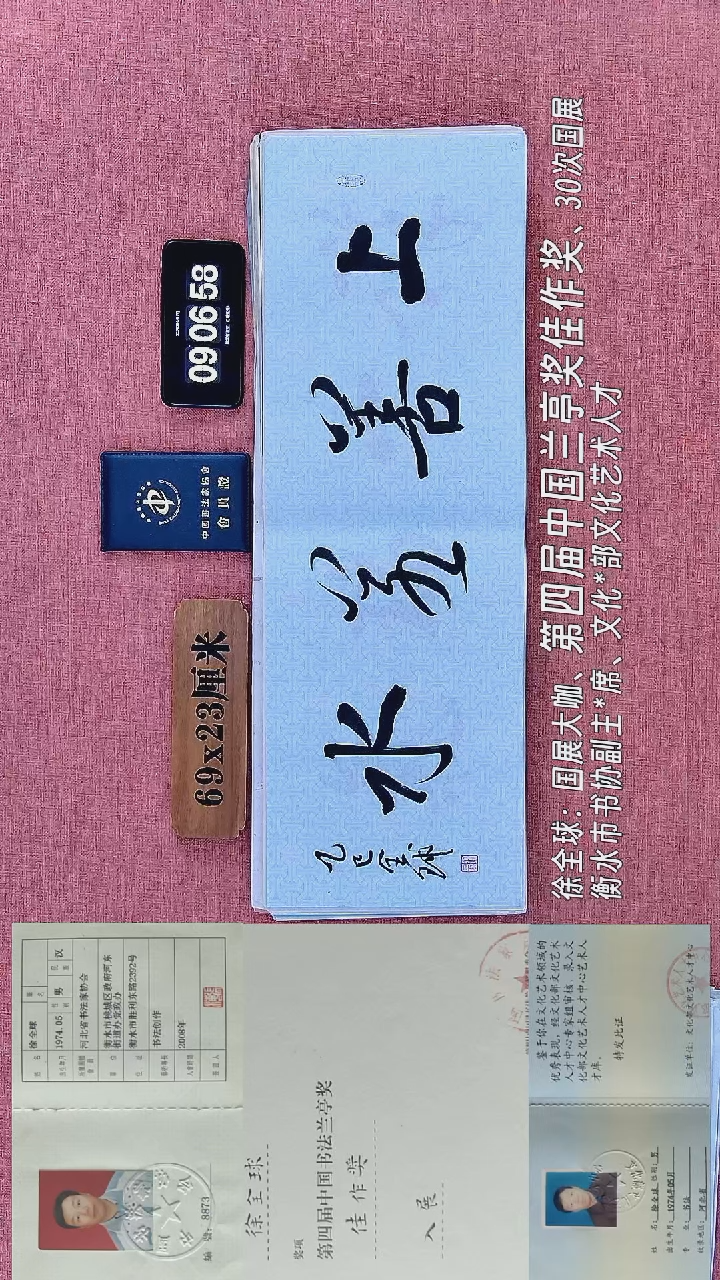 上善若水
乙巳全球
090658
中国书法家协会
会员证
69x23厘米
徐全球：国展大咖、第四届中国兰亭奖佳作奖、30次国展
衡水市书协副主*席、文化*部文化艺术人才
徐全球
1974.05 男 汉
河北省书法家协会
衡水市桃城区政府河东
街道办党政办
衡水市胜利东路2292号
书法创作
2008年
编号:8873
徐全球
奖项
第四届中国书法兰亭奖
佳作奖
入展
鉴于你在文化艺术领域的
优秀表现，经文化部文化艺术
人才中心专家组审核，录入文
化部文化艺术人才中心艺术人
才库。
特发此证
发证单位：文化部文化艺术人才中心
姓名：徐全球 性别：男
出生年月：1974年05月
专业：书法